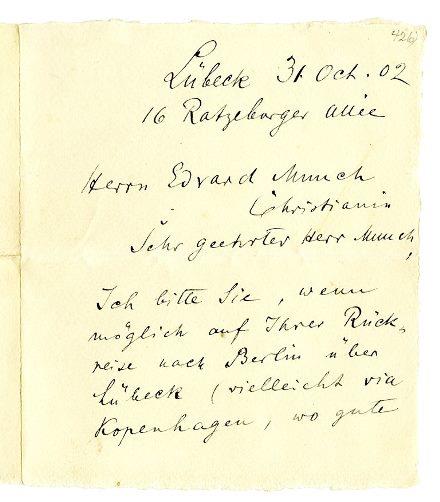 426
Lübeck 31 Oct. 02
16 Ratzeburger Allee
Herrn Edvard Munch
Christiania
Sehr geehrter Herr Munch,
Ich bitte Sie, wenn
möglich auf Ihrer Rück-
reise nach Berlin über
Lübeck (vielleicht via
Kopenhagen, wo gute